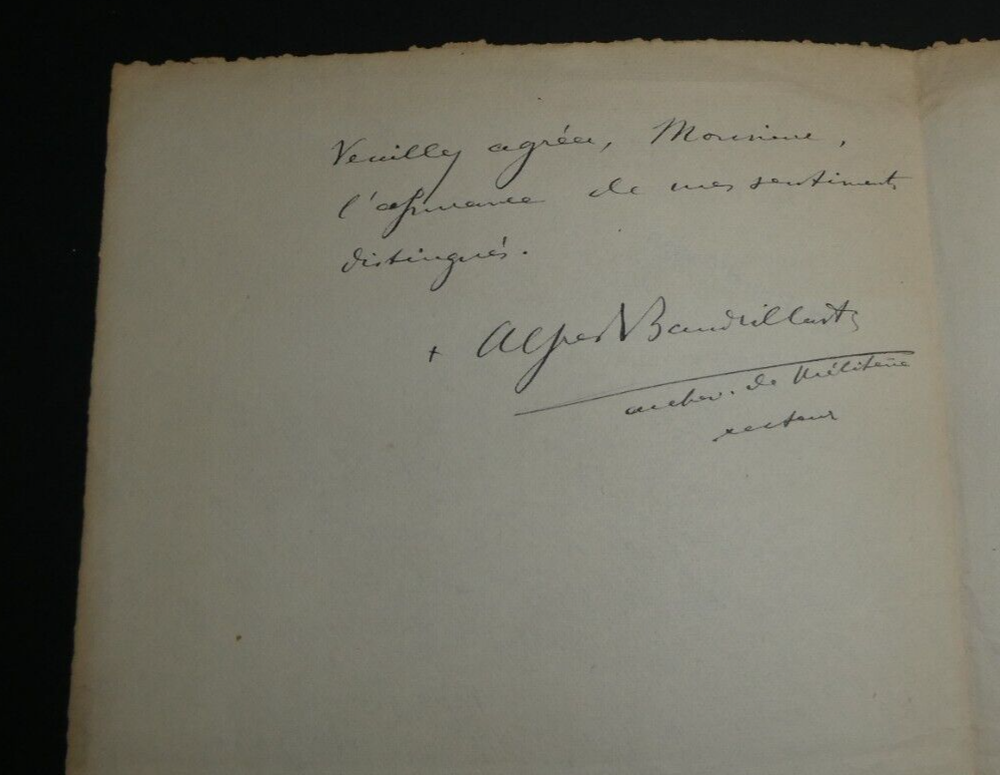 Veuillez agréer, Monsieur,
l'assurance de mes sentiments
distingués.
+ Alfred Baudrillart
archev. de Mélitène
recteur